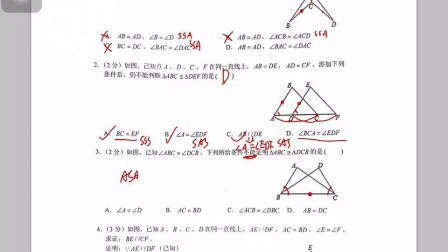 B C D
A. AB = AD，∠B=∠D SSA B. AB = AD，∠ACB=∠ACD SSA
C. BC = DC，∠BAC=∠DAC SSA D. AB = AD，∠BAC=∠DAC
2. (2分) 如图，已知点 A、D、C、F 在同一直线上，AB=DE，AD=CF，添加下列
条件后，仍不能判断△ABC≌△DEF的是( D )
B E
A D C F
A. BC = EF SSS B. ∠A=∠EDF SAS C. AB//DE D. ∠BCA=∠EDF
∠A=∠EDF SAS
3. (2分) 如图，已知∠ABC=∠DCB，下列所给条件不能证明△ABC≌△DCB的是( )
ASA
A D
B C
A. ∠A=∠D B. AC=BD C. ∠ACB=∠DBC D. AB=DC
4. (3分) 如图，A、B、C、D在同一直线上，AE//DF，AC=BD，∠E=∠F，
求证：BE//CF.
证明：∵AE//DF (已知)
E